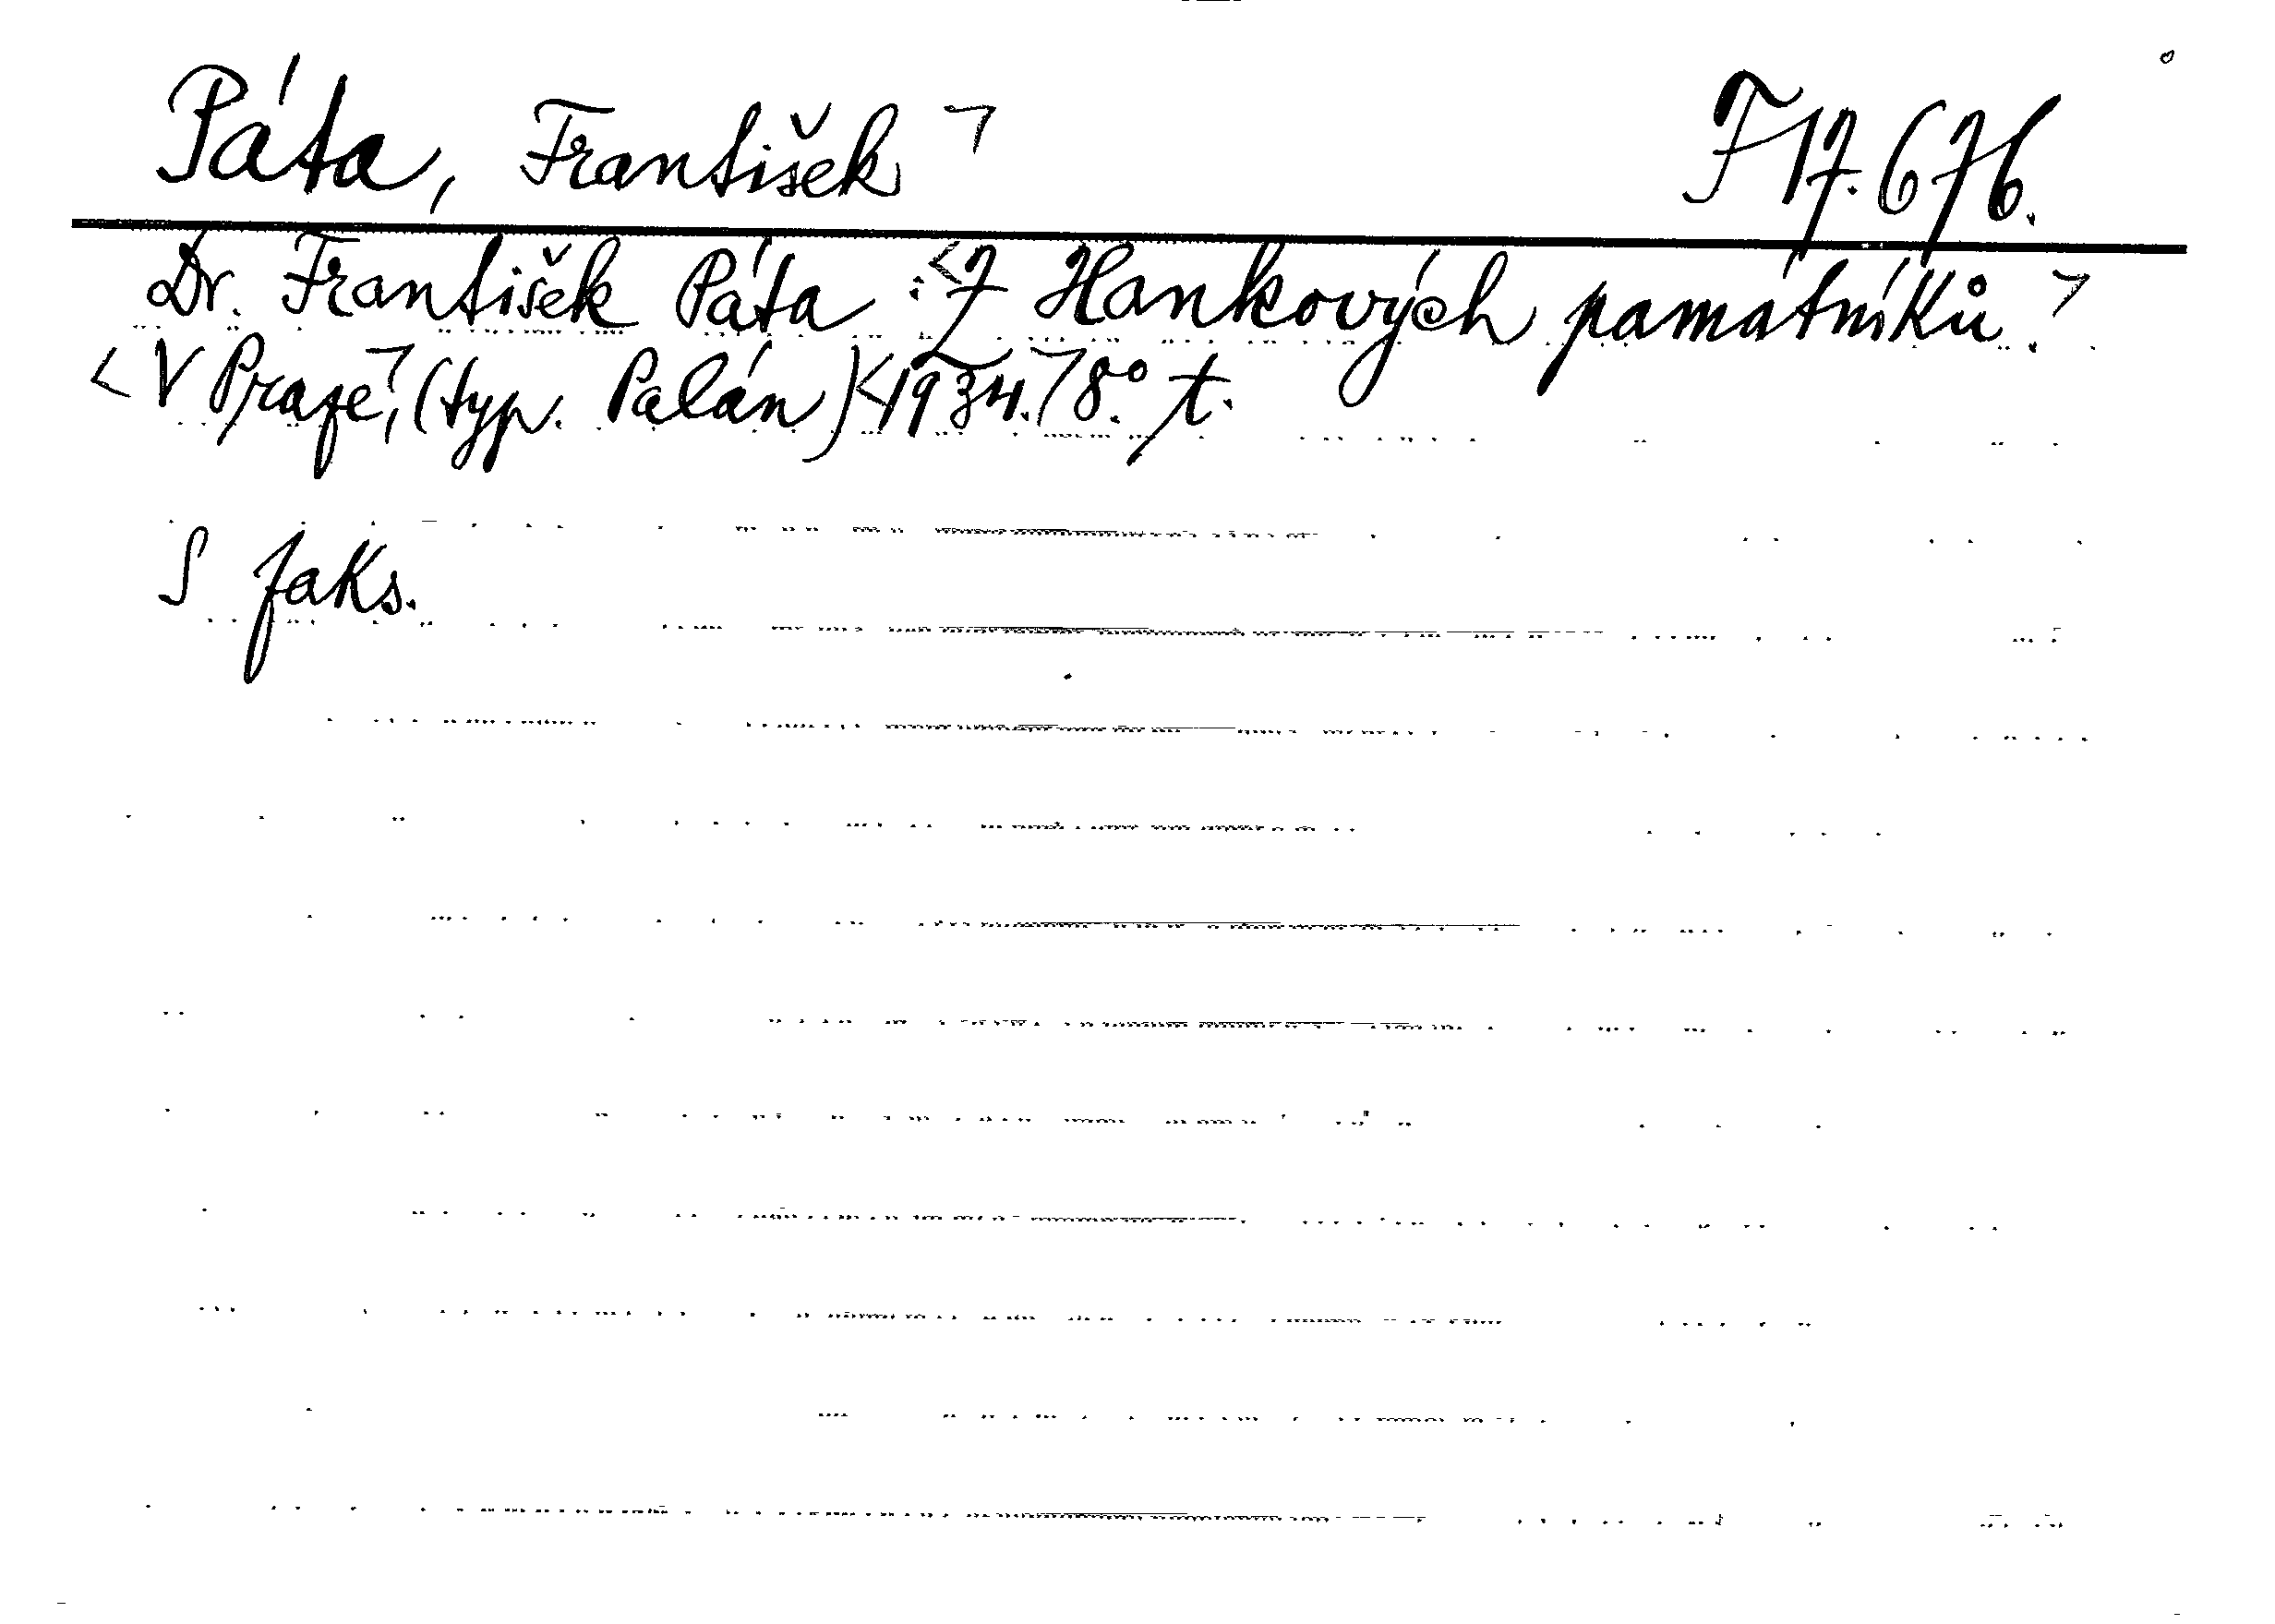 Páta, František ㄱ F 17.676.
Dr. František Páta : <Z Hankových památníků.ㄱ
<V Praze,ㄱ (typ. Palán) <1934.ㄱ 8°. t.
S faks.